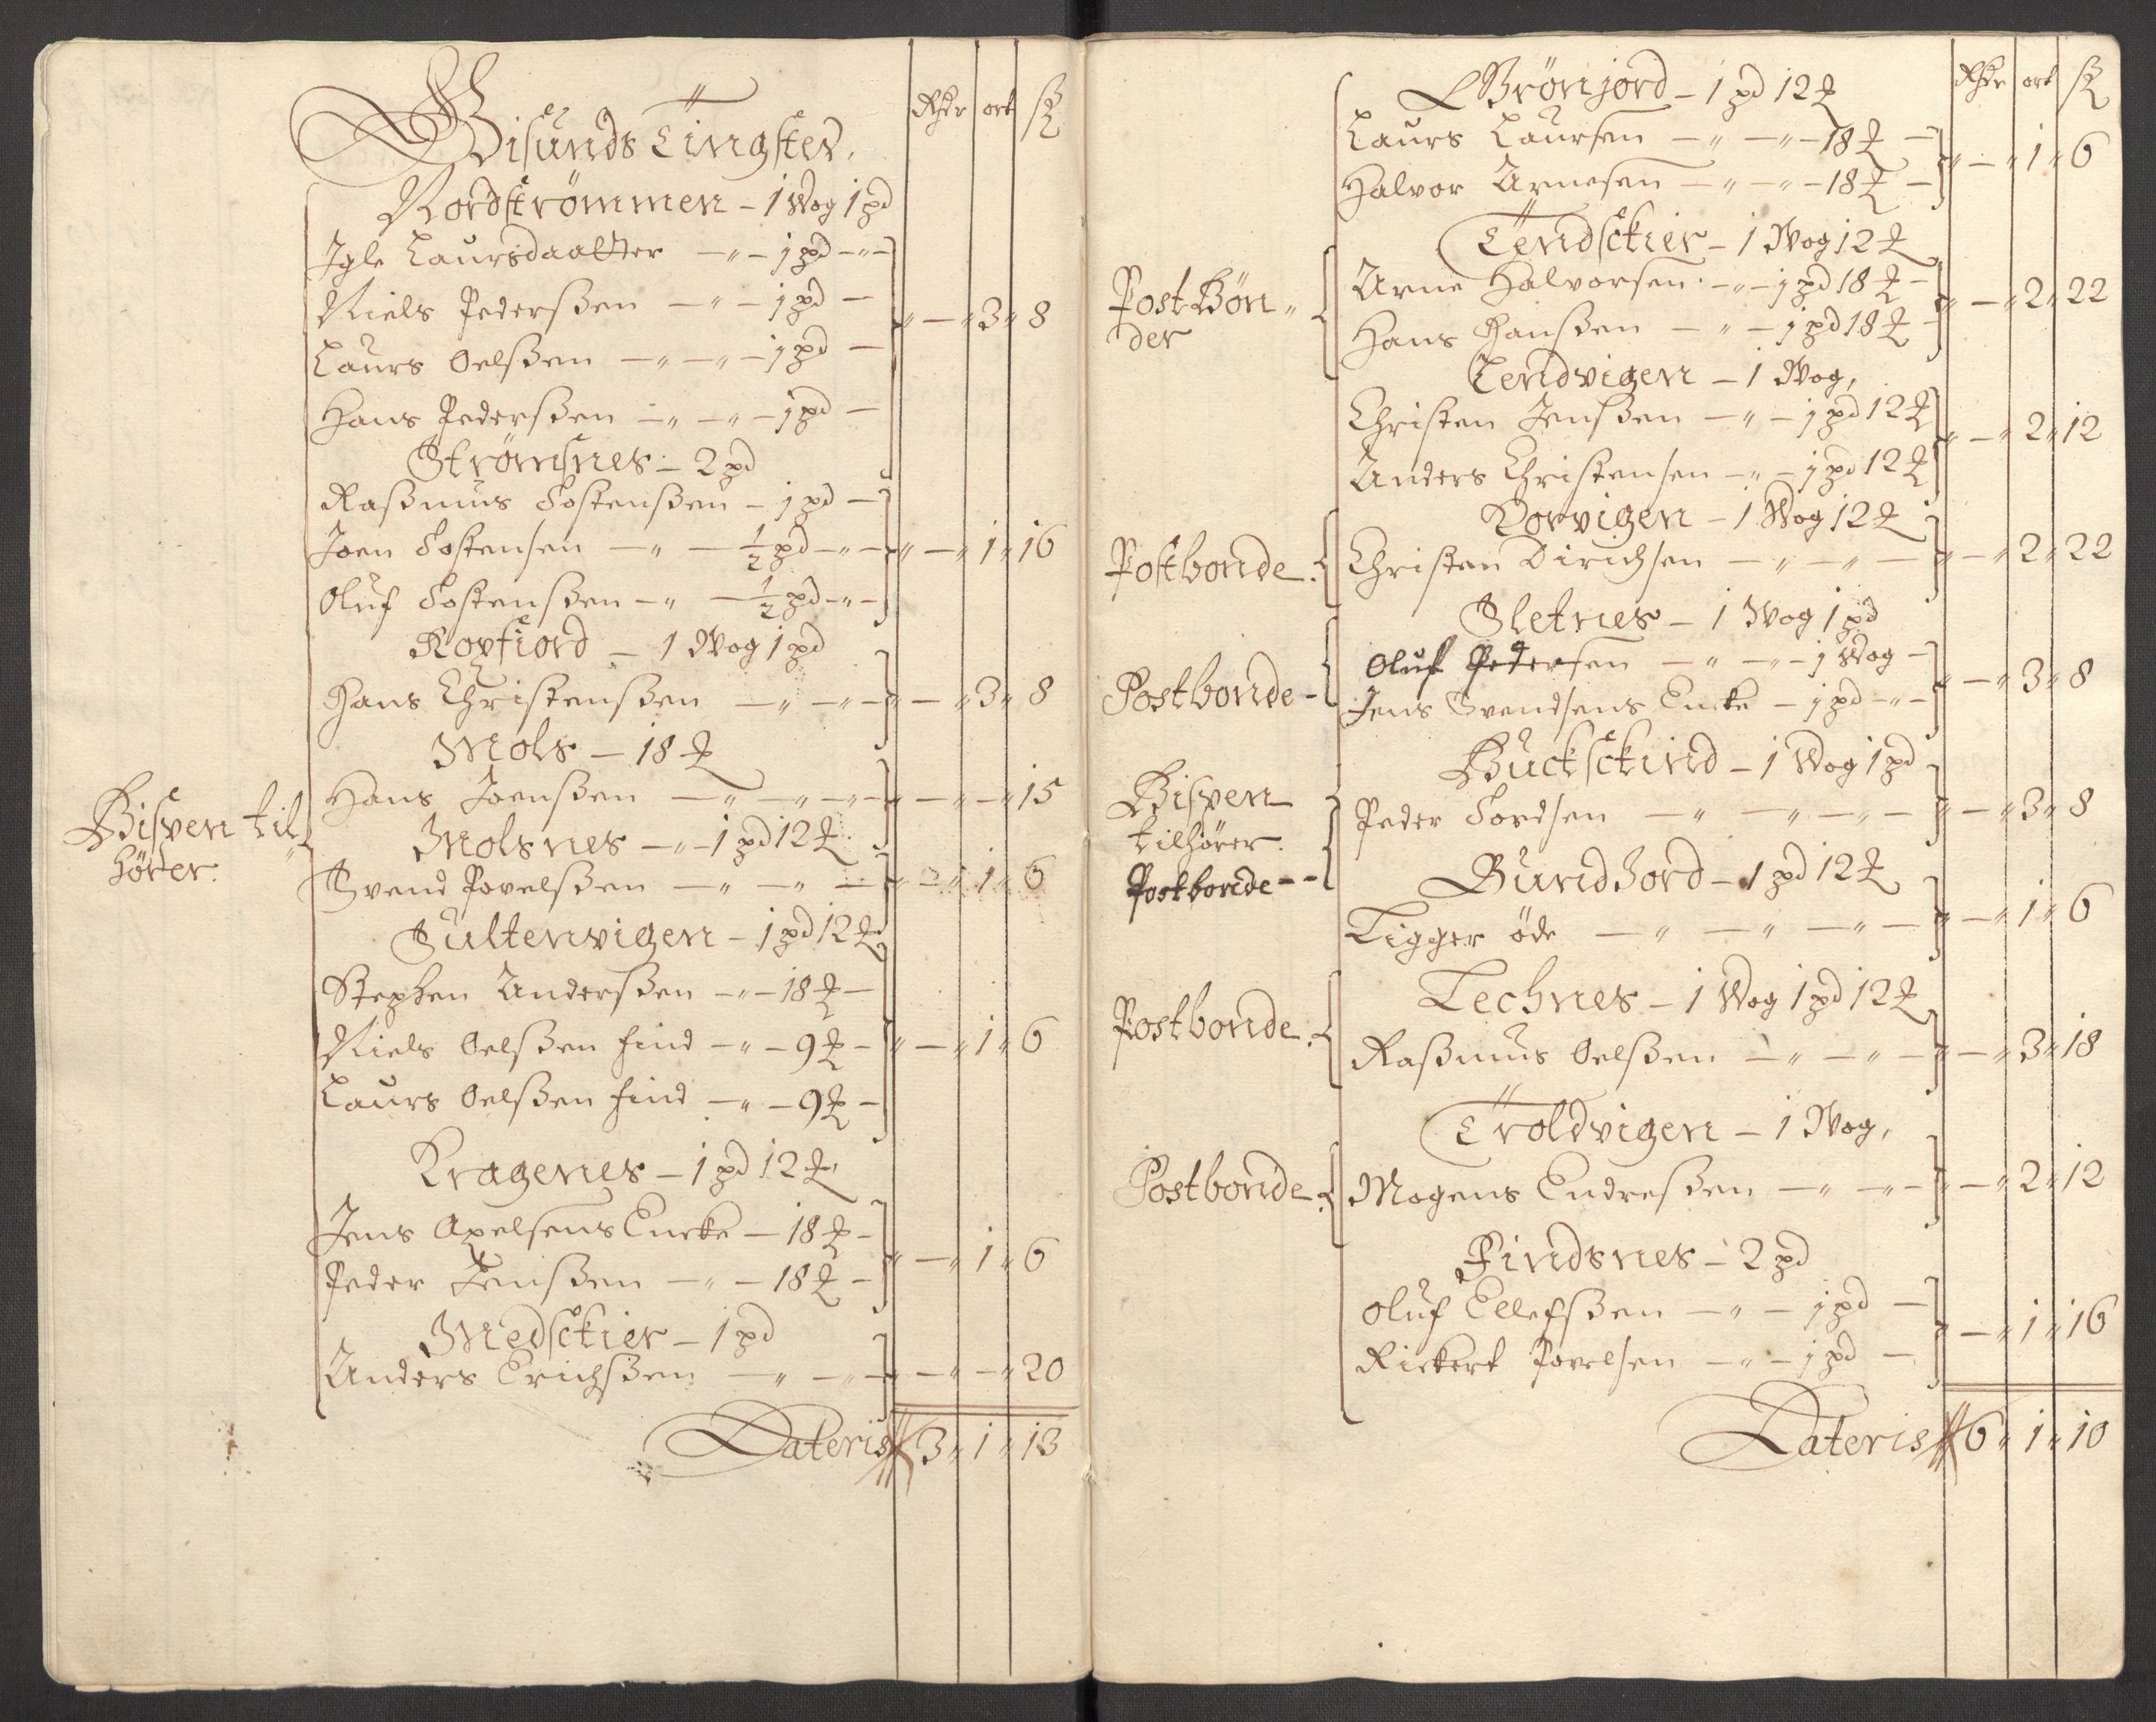 Rdr ort ß
Gisunds Tingsted,
Nordstrømmen - 1 Wog 1 pd
Igle Laursdaatter - " - 1 pd - " -
Niels Pederßen - " - 1 pd - " - " 3 " 8
Laurs Oelßen - " - " - 1 pd -
Hans Pederßen - " - " - 1 pd -
Strømsnes - 2 pd
Raßmus Tostenßen - 1 pd -
Joen Tostensen - " - ½ pd - " - " - " 1 " 16
Oluf Tostenßen - " - ½ pd - " -
Roxfiord - 1 Wog 1 pd
Hans Christenßen - " - " - " - " 3 " 8
Mols - 18 ℔
Hans Joenßen - " - " - " - " - " - " 15
Bispen til
hører.
Molsnes - " - 1 pd 12 ℔
Svend Povelßen - " - " - " - " 1 " 6
Sultenvigen - 1 pd 12 ℔
Stephen Anderßen - " - 18 ℔ -
Niels Oelßen find - " - 9 ℔ - " - " 1 " 6
Laurs Oelßen find - " - 9 ℔ -
Kragenes - 1 pd 12 ℔
Jens Axelsens Encke - 18 ℔ -
Peder Jenßen - " - 18 ℔ - " - " 1 " 6
Medsckier - 1 pd
Anders Erichßen - " - " - " - " - " 20
Lateris 3 " 1 " 13
Rdr ort ß
Grönjord - 1 pd 12 ℔
Laurs Laursen - " - " - 18 ℔ - " - " 1 " 6
Halvor Arnesen - " - " - 18 ℔ -
Tendsckier - 1 Wog 12 ℔
Post-Bön
der
Arne Halvorsen - " - 1 pd 18 ℔ - " - " 2 " 22
Hans Hanßen - " - 1 pd 18 ℔ -
Lendvigen - 1 Wog,
Christen Jenßen - " - 1 pd 12 ℔ " - " 2 " 12
Anders Christensen - " - 1 pd 12 ℔
Korvigen - 1 Wog 12 ℔
Postbonde. Christen Dirichsen - " - " - " - " 2 " 22
Sletnes - 1 Wog 1 pd
Oluf Pedersen - " - " - 1 Wog - " - " 3 " 8
Postbonde - Jens Svendsens Encke - 1 pd - " -
Bucksckind - 1 Wog 1 pd
Bispen
tilhører.
Peder Tordsen - " - " - " - " - " 3 " 8
Postbonde - -
Gundjord - 1 pd 12 ℔
Ligger øde - " - " - " - " - " 1 " 6
Lechnes - 1 Wog 1 pd 12 ℔
Postbonde. Raßmus Oelßen - " - " - " - " 3 " 18
Troldvigen - 1 Wog,
Postbonde. Mogens Endreßen - " - " - " - " 2 " 12
Findsnes - 2 pd
Oluf Ellefßen - " - 1 pd - " - " 1 " 16
Rickert Povelsen - " - 1 pd -
Lateris 6 " 1 " 10